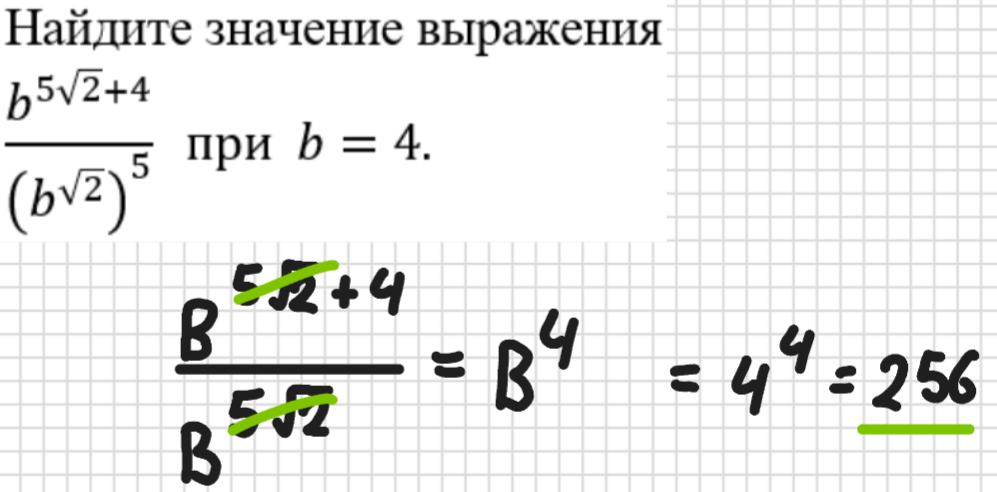 Найдите значение выражения
b^{5√2+4}
при b = 4.
(b^{√2})^5
B^{5√2+4}
= B^4 = 4^4 = 256
B^{5√2}